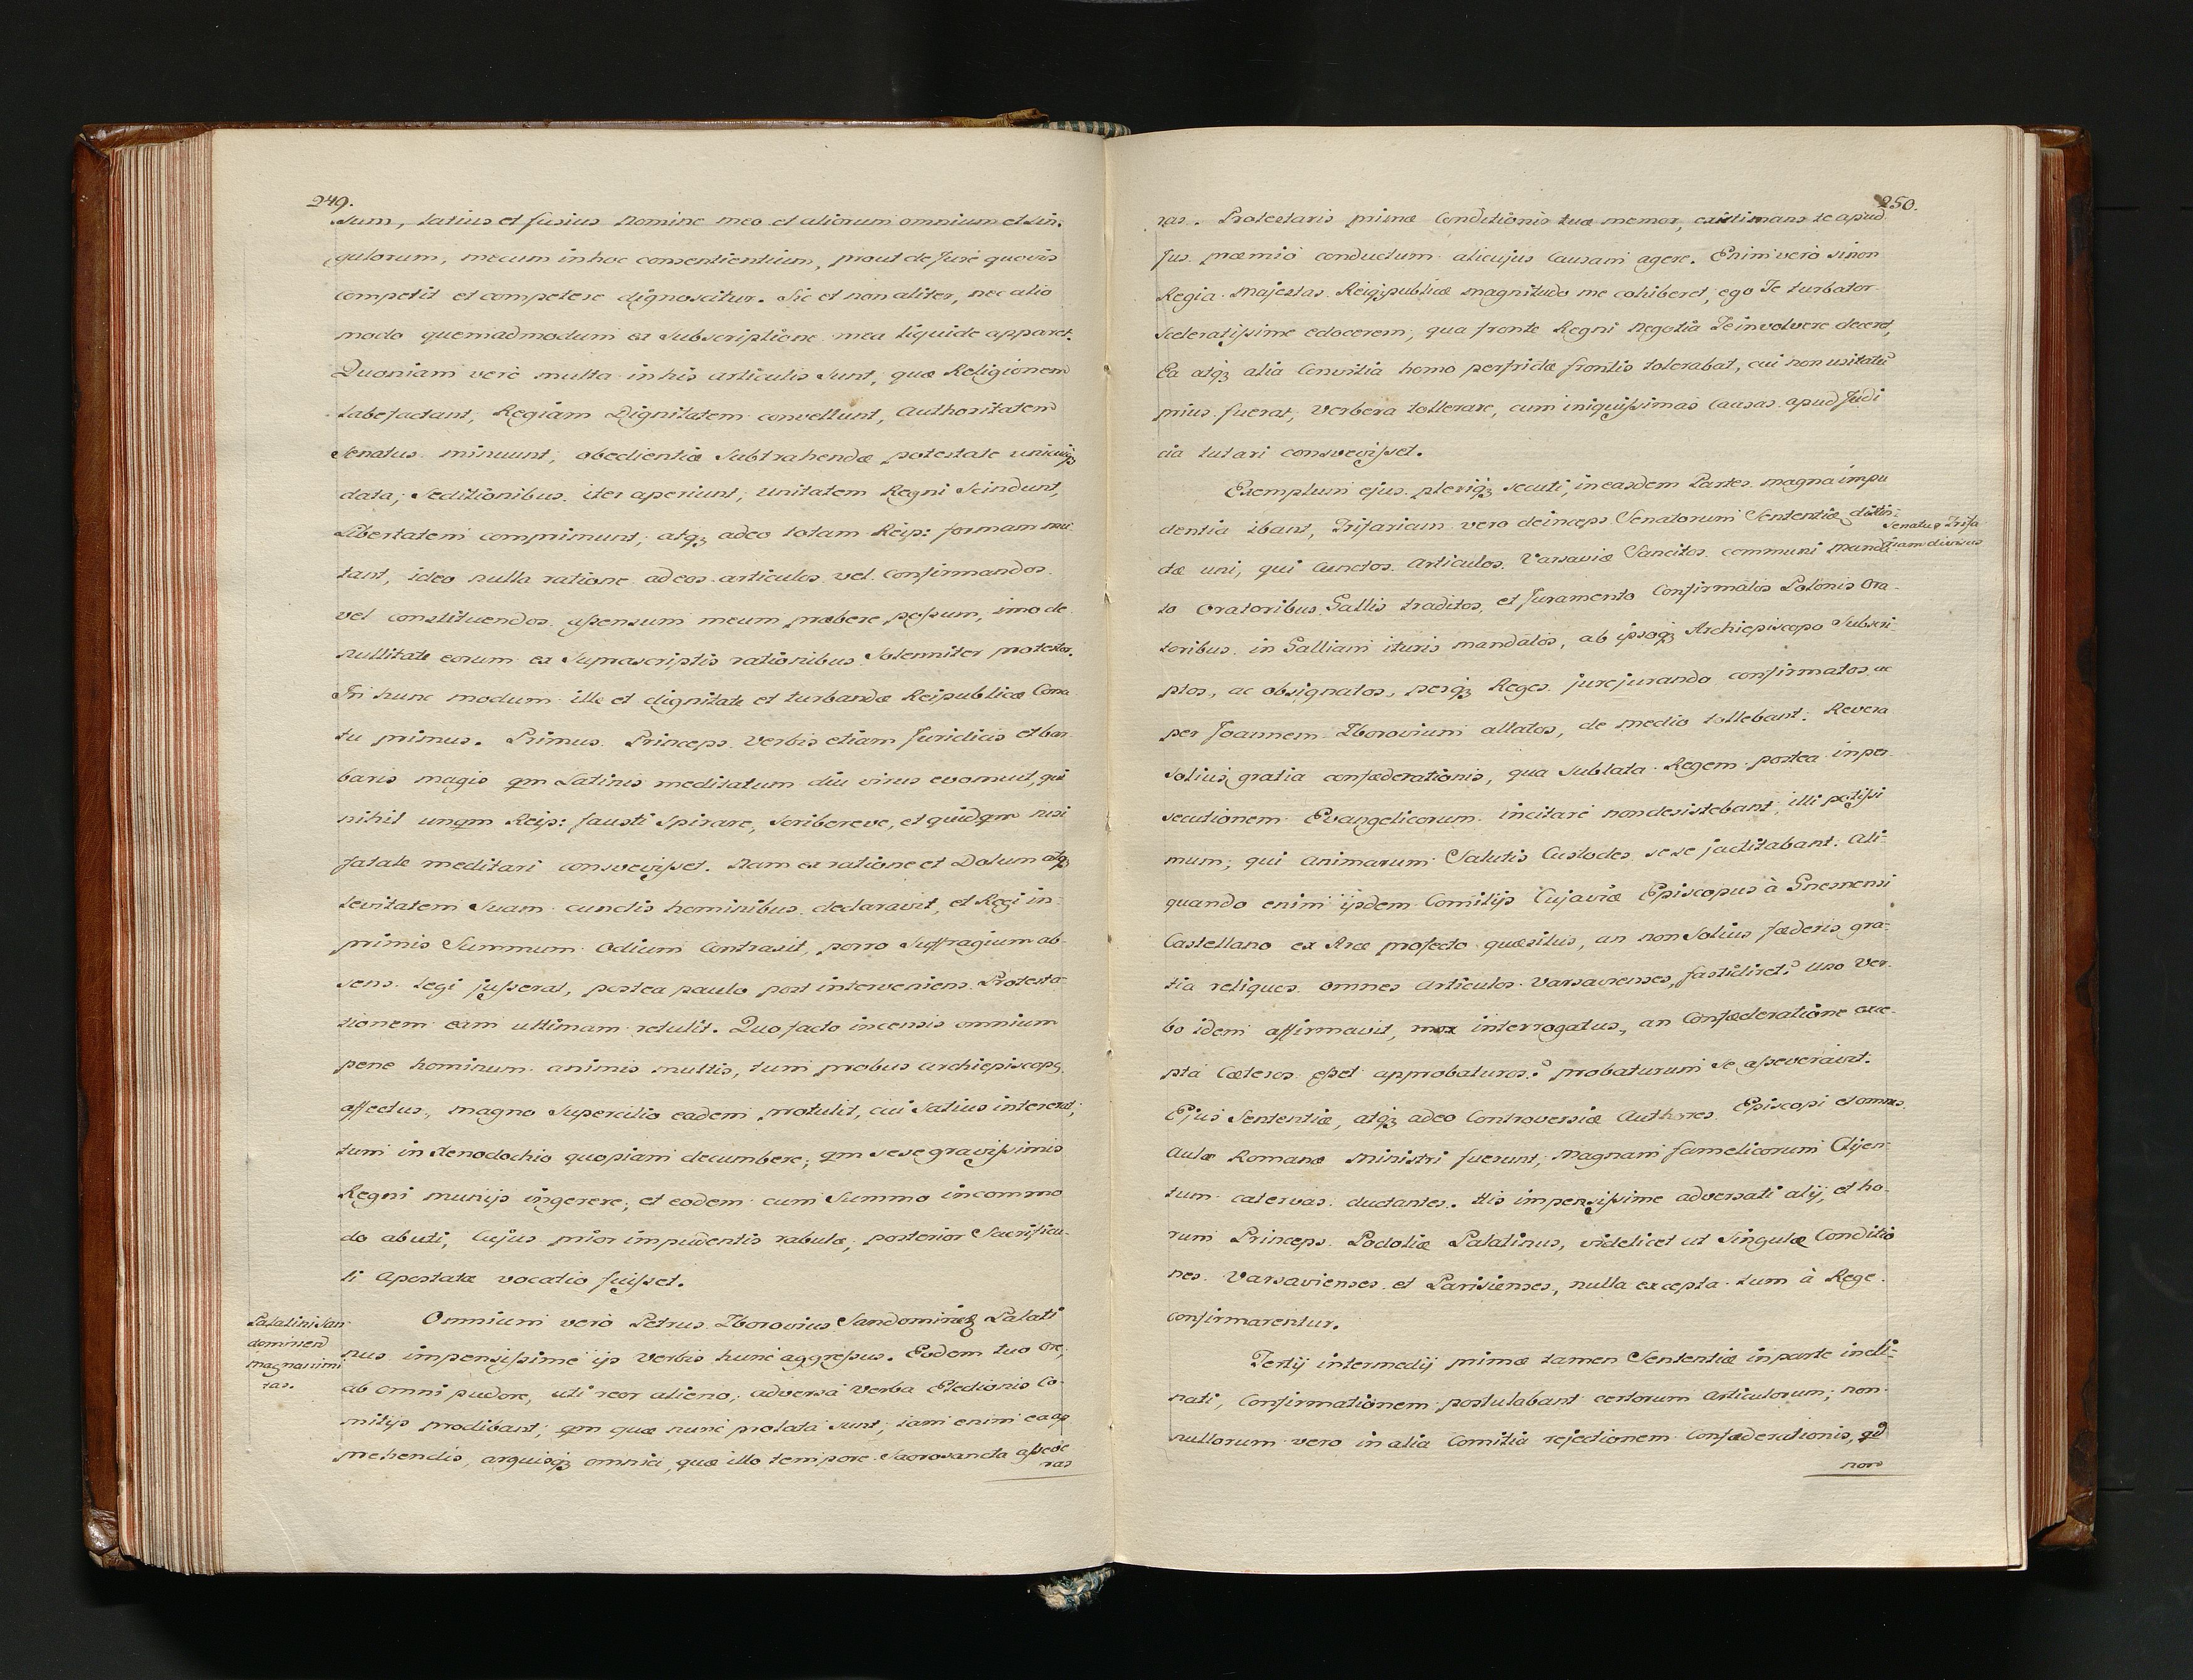 249.
sum, latius et fusius nomine meo et aliorum omnium et sin-
gulorum, mecum in hoc consentientium, prout de Jure quovis
competit et competere dignoscitur. Sic et non aliter, nec alio
modo quemadmodum ex Subscriptione mea liquide apparet.
Quoniam vero multa in his articulis sunt, quæ Religionem
labefactant, Regiam Dignitatem convellunt, Authoritatem
Senatus minuunt, obedientiæ Subtrahendæ potestate unicuiqz
data, Seditionibus iter aperiunt, Unitatem Regni Scindunt,
Libertatem comprimunt, atqz adeo totam Reip: formam mu
tant, ideo nulla ratione ad eos articulos vel confirmandos
vel constituendos assensum meum præbere possum, imo de
nullitate eorum ex Supra scriptis rationibus Solenniter protestor.
In hunc modum ille et dignitate et turbandæ Reipublicæ Cona
tu primus. Primus Princeps Verbis etiam Juridicis et bar
baris magis qm Latinis meditatum diu virus evomuit, qui
nihil unqm Reip: fausti Spirare, Scribereve, et quidqm nisi
fatale meditari consvevisset. Nam ea ratione et Dolum atqz
levitatem Suam cunctis hominibus declaravit, et Regi in-
primis Summum Odium Contraxit, porro Suffragium ab-
sens legi jusserat, postea paulo post interveniens Protesta
tionem eam ultimam retulit. Quo facto incensis omnium
pene hominum animis multis, tum probus archiepiscopq
affectus, magno Supercilio eadem protulit, cui Satius intererat,
tum in Xenodochio quopiam decumbere, qm sese gravissimis
Regni munijs ingerere, et eodem cum Summo incommo
do abuti, Cujus prior impudentis rabulæ, posterior Sacrificu-
li Apostatæ vocatio fuisset.
Omnium vero Petrus Zborovius Sandomirięs Palati
nus impensissime ijs verbis hunc aggressus. Eodem tuo ore,
ab omni pudore, uti reor alieno, adversa verba Electionis Co-
mitijs prodibant, qm quæ nunc prolata sunt, iam enim ea ap
prehendis, arguisqz omnia, quæ illo tempore Sacrosancta asseve
ras
Palatini San
domirien
magnanimi
tas.
250.
ras. Protestaris primæ Conditionis tuæ memor, existimans te apud
Jus præmio conductum alicujus Causam agere. Enim vero si non
Regia Majestas Reiqzpublicæ magnitudo me cohiberet, ego Te turbator
Sceleratissime edocerem, qua fronte Regni Negotia Te involvere deceret,
Ea atqz alia Convitia homo perfrictæ frontis tolerabat, cui non usitatū
prius fuerat, Verbera tollerare, cum iniquissimas Causas apud Judi
cia tutari consvevisset.
Exemplum ejus pleriqz secuti, in easdem Partes magna impu
dentia ibant, Trifariam vero deinceps Senatorum Sententiæ distin-
ctæ uni, qui Cunctos Articulos Varsaviæ Sancitos communi manda
to Oratoribus Gallis traditos, et Juramento Confirmatos Polonis Ora-
toribus in Galliam ituris mandatos, ab ipsoqz Archiepiscopo Subscri-
ptos, ac obsignatos, perqz Reges jurejurando confirmatos ac
per Joannem Zborovium allatos, de medio tollebant. Revera
solius gratia confæderationis, qua Sublata Regem postea in per
secutionem Evangelicorum incitare non desistebant, illi potissi
mum, qui Animarum Salutis Custodes sese jactitabant. Ali-
quando enim ijsdem Comitijs Cujaviæ Episcopus à Gnesnensi
Castellano ex Arce profecto quæsitus, an non Solius fæderis gra-
tia reliquos omnes Articulos Varsavienses, fastidiret? Uno Ver
bo idem affirmavit, mox interrogatus, an Confæderatione exce-
pta Cæteros esset approbaturos? probaturum se asseveravit.
Ejus Sententiæ, atqz adeo Controversiæ Authores Episcopi et omnes
Aulæ Romanæ Ministri fuerunt, magnam famelicorum Clijen
tum catervas ductantes. His impensissime adversati alij, et ho-
rum Princeps Podoliæ Palatinus, videlicet ut Singulæ Conditio
nes Varsavienses et Parisienses, nulla excepta tum à Rege
confirmarentur.
Tertij intermedij primæ tamen Sententiæ in parte incli-
nati, Confirmationem postulabant certorum Articulorum, non
nullorum vero in alia Comitia rejectionem Confæderationis, qd
non
Senatus Trifa
riam divisus